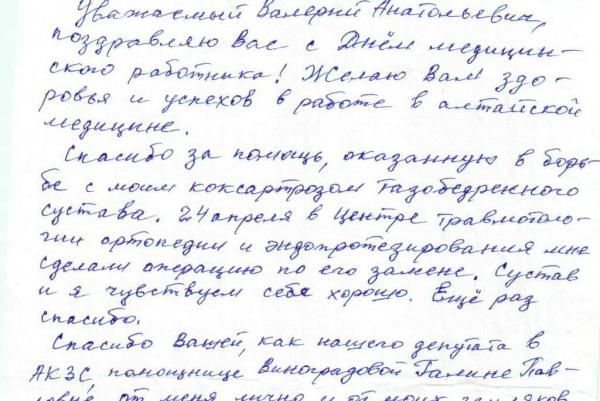 Уважаемый Валерий Анатольевич,
поздравляю Вас с Днём медицин-
ского работника! Желаю Вам здо-
ровья и успехов в работе в алтайской
медицине.
Спасибо за помощь, оказанную в борь-
бе с моим коксартрозом тазобедренного
сустава. 24 апреля в Центре травмотоло-
гии ортопедии и эндопротезирования мне
сделали операцию по его замене. Сустав
и я чувствуем себя хорошо. Ещё раз
спасибо.
Спасибо Вашей, как нашего депутата в
АКЗС, помощнице Виноградовой Галине Пав-
ловне от меня лично и от моих земляков